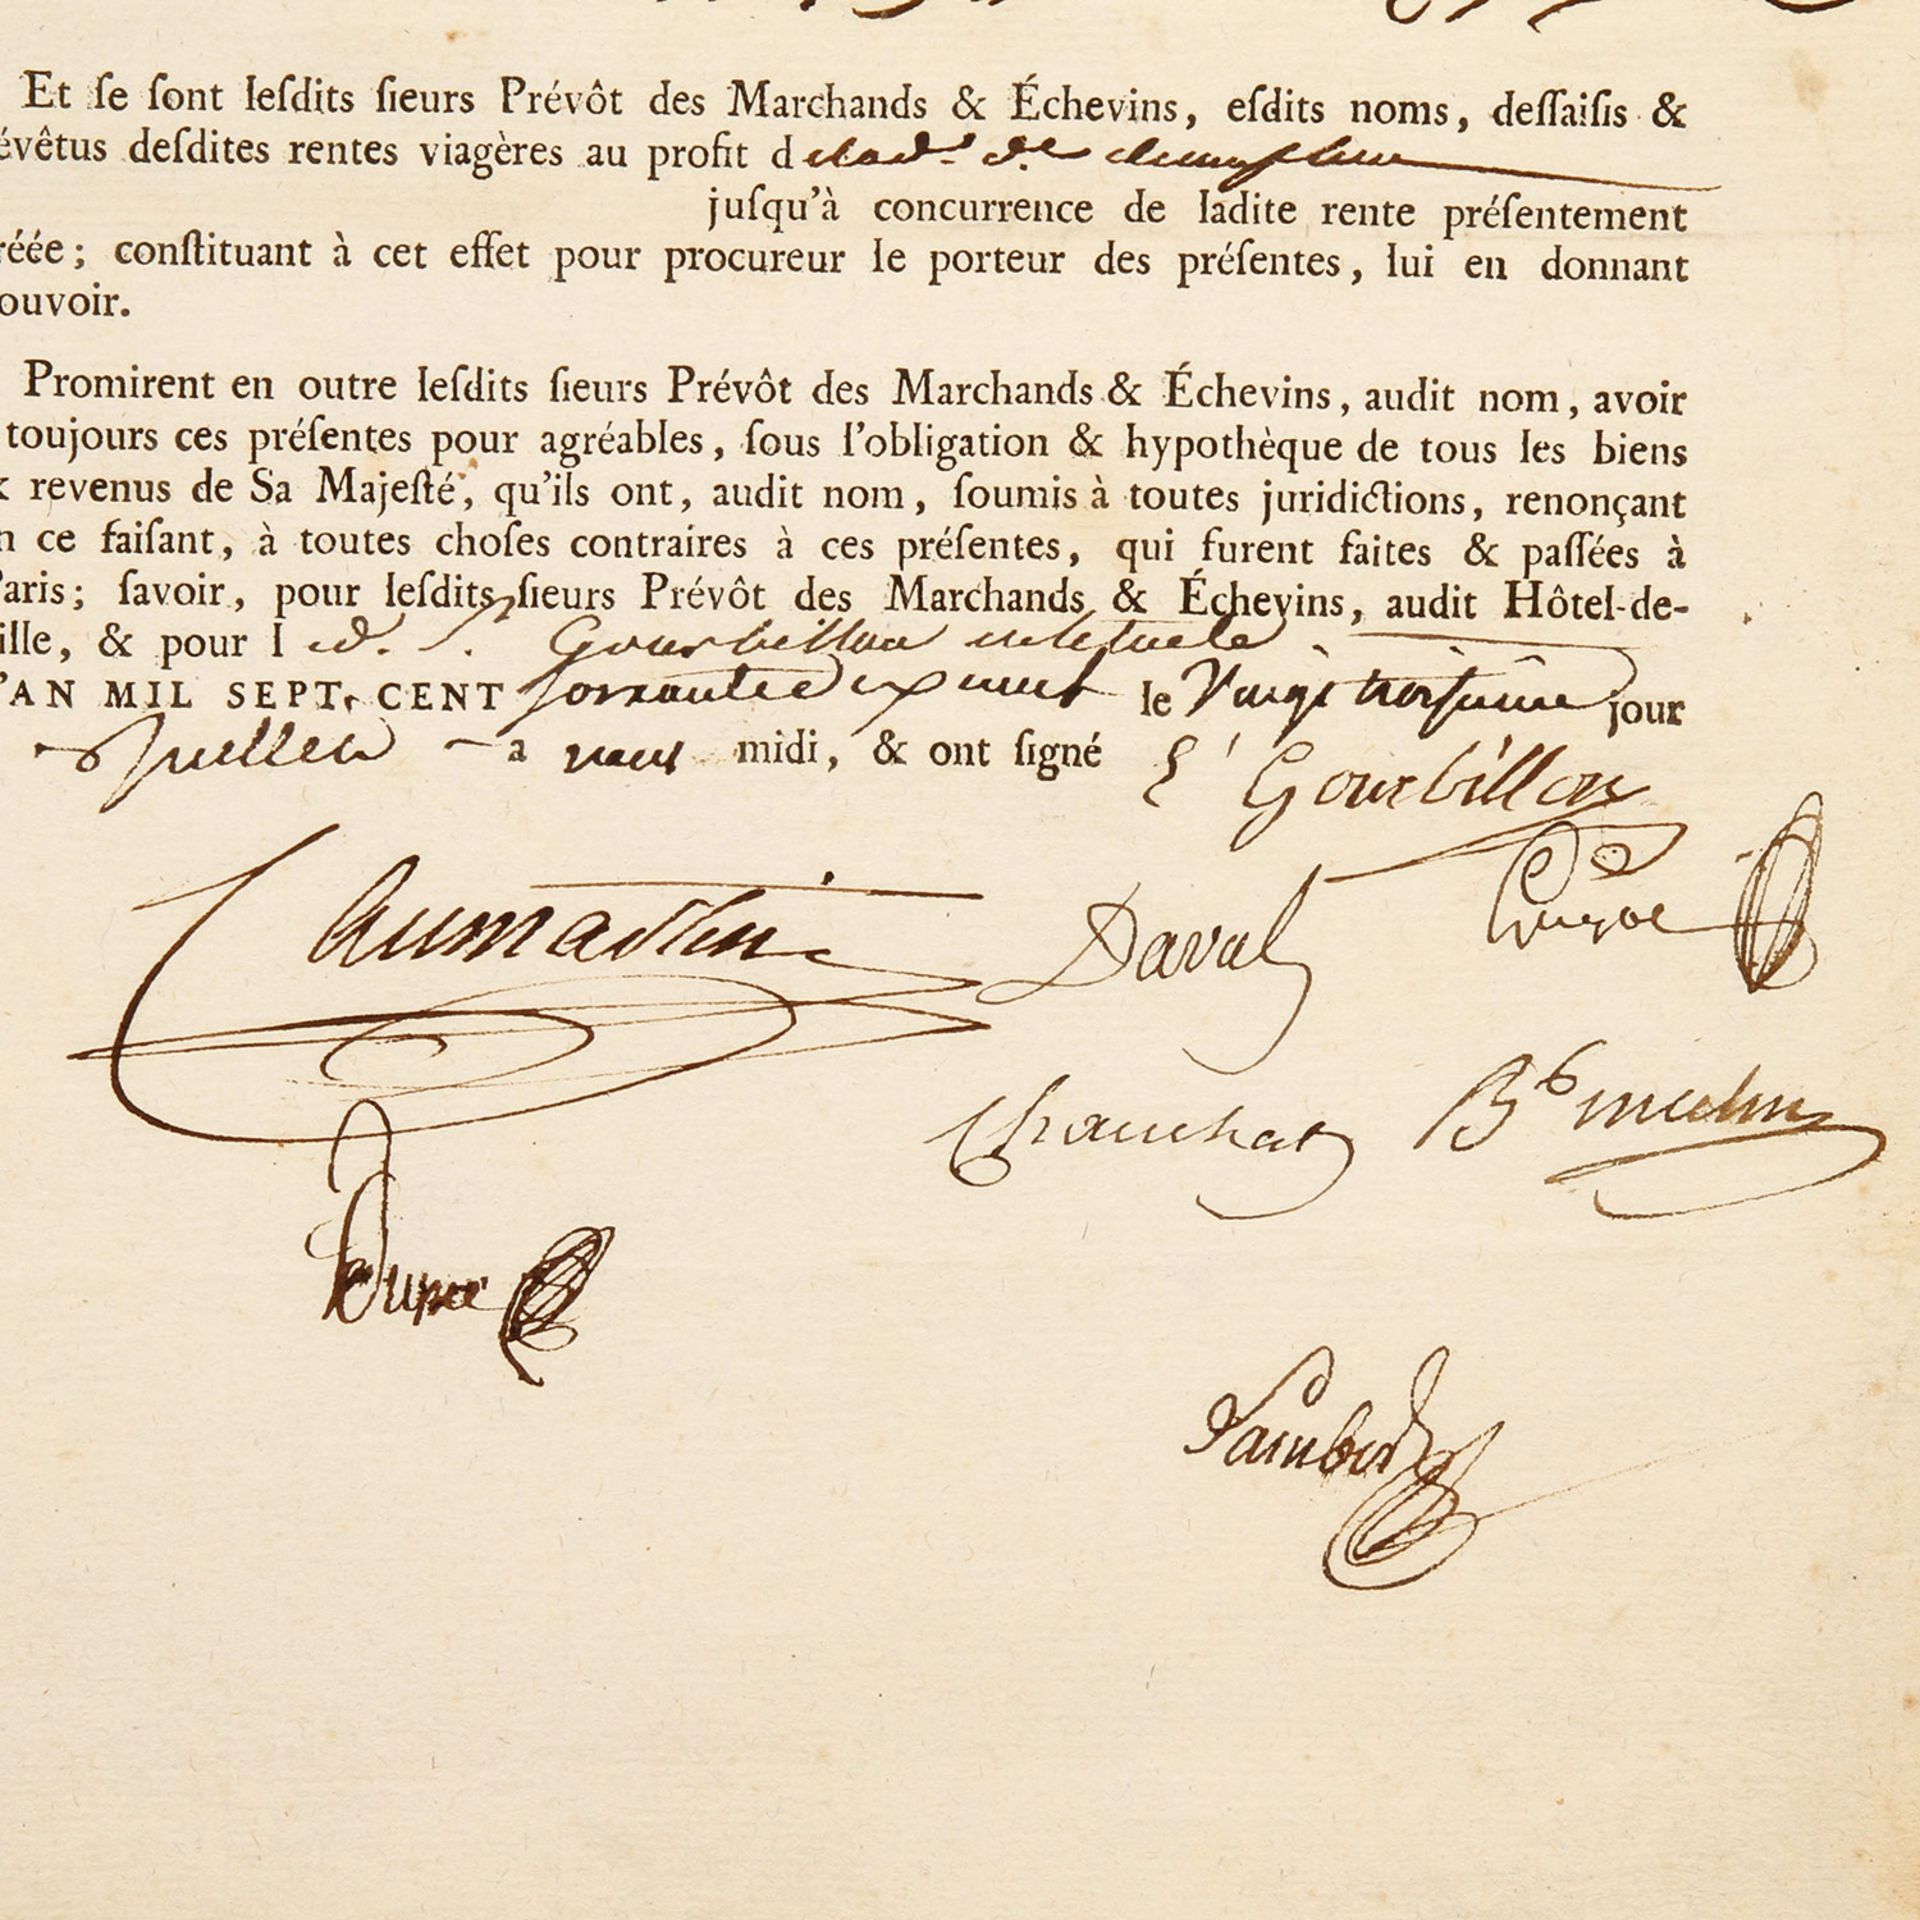 Et ſe ſont leſdits ſieurs Prévôt des Marchands & Échevins, eſdits noms, deſſaiſis &
évêtus deſdites rentes viagères au profit d
juſqu'à concurrence de ladite rente préſentement
réée; conſtituant à cet effet pour procureur le porteur des préſentes, lui en donnant
ouvoir.
Promirent en outre leſdits ſieurs Prévôt des Marchands & Échevins, audit nom, avoir
toujours ces préſentes pour agréables, ſous l'obligation & hypothèque de tous les biens
& revenus de Sa Majeſté, qu'ils ont, audit nom, ſoumis à toutes juridictions, renonçant
n ce faiſant, à toutes choſes contraires à ces préſentes, qui furent faites & paſſées à
Paris; ſavoir, pour leſdits ſieurs Prévôt des Marchands & Échevins, audit Hôtel-de-
ille, & pour l d. S. Gourbillon
'AN MIL SEPT CENT soixante dix neuf le Vingt troisieme jour
Juillet a midi, & ont ſigné Gourbillon
Daval
Chauchat
Dupré